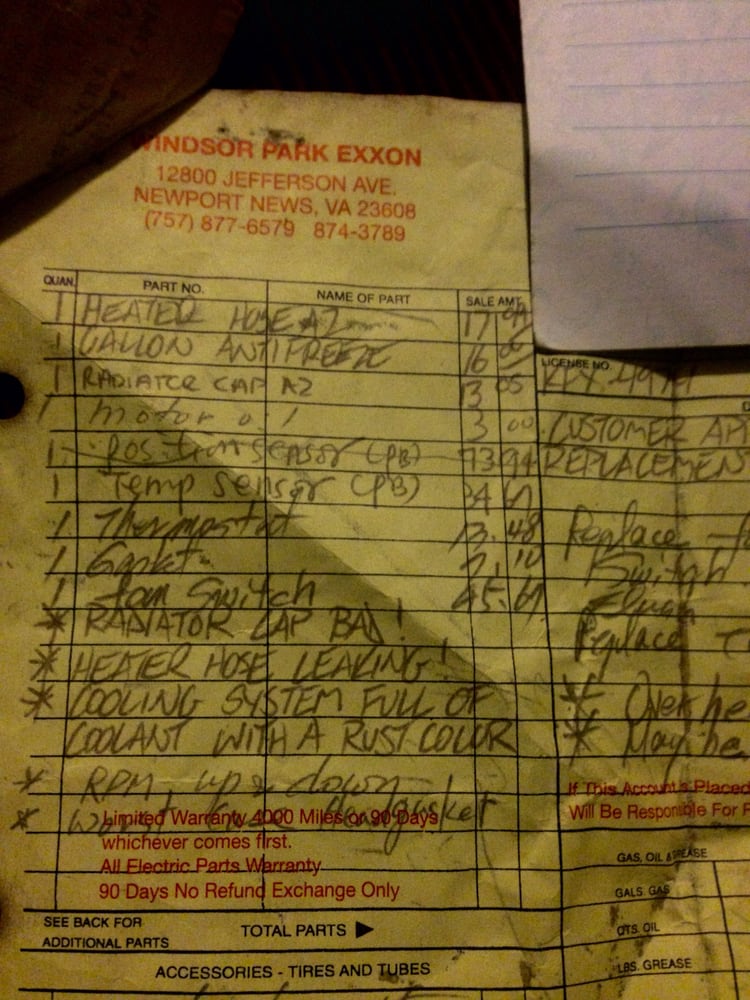 WINDSOR PARK EXXON
12800 JEFFERSON AVE.
NEWPORT NEWS, VA 23608
(757) 877-6579 874-3789
QUAN. PART NO. NAME OF PART SALE AMT
1 HEATER HOSE AZ 17
1 GALLON ANTIFREEZE 16
1 RADIATOR CAP AZ 13 05
1 motor oil 3 00
1 Position sensor (PB) 93.94
1 Temp sensor (PB) 34
1 Thermostat 13.48
1 Gasket 7.10
1 fan Switch 45.
* RADIATOR CAP BAD!
* HEATER HOSE LEAKING!
* COOLING SYSTEM FULL OF
COOLANT WITH A RUST COLOR
* RPM up & down
* Headgasket
Limited Warranty 4000 Miles or 90 Days
whichever comes first.
All Electric Parts Warranty
90 Days No Refund Exchange Only
SEE BACK FOR
ADDITIONAL PARTS
TOTAL PARTS
ACCESSORIES - TIRES AND TUBES
LICENSE NO.
CUSTOMER
REPLACEMEN
Replace
Switch
Replace
* Over he
* May be
If This Account is Placed
Will Be Responsible For
GAS, OIL & GREASE
GALS. GAS
QTS. OIL
LBS. GREASE